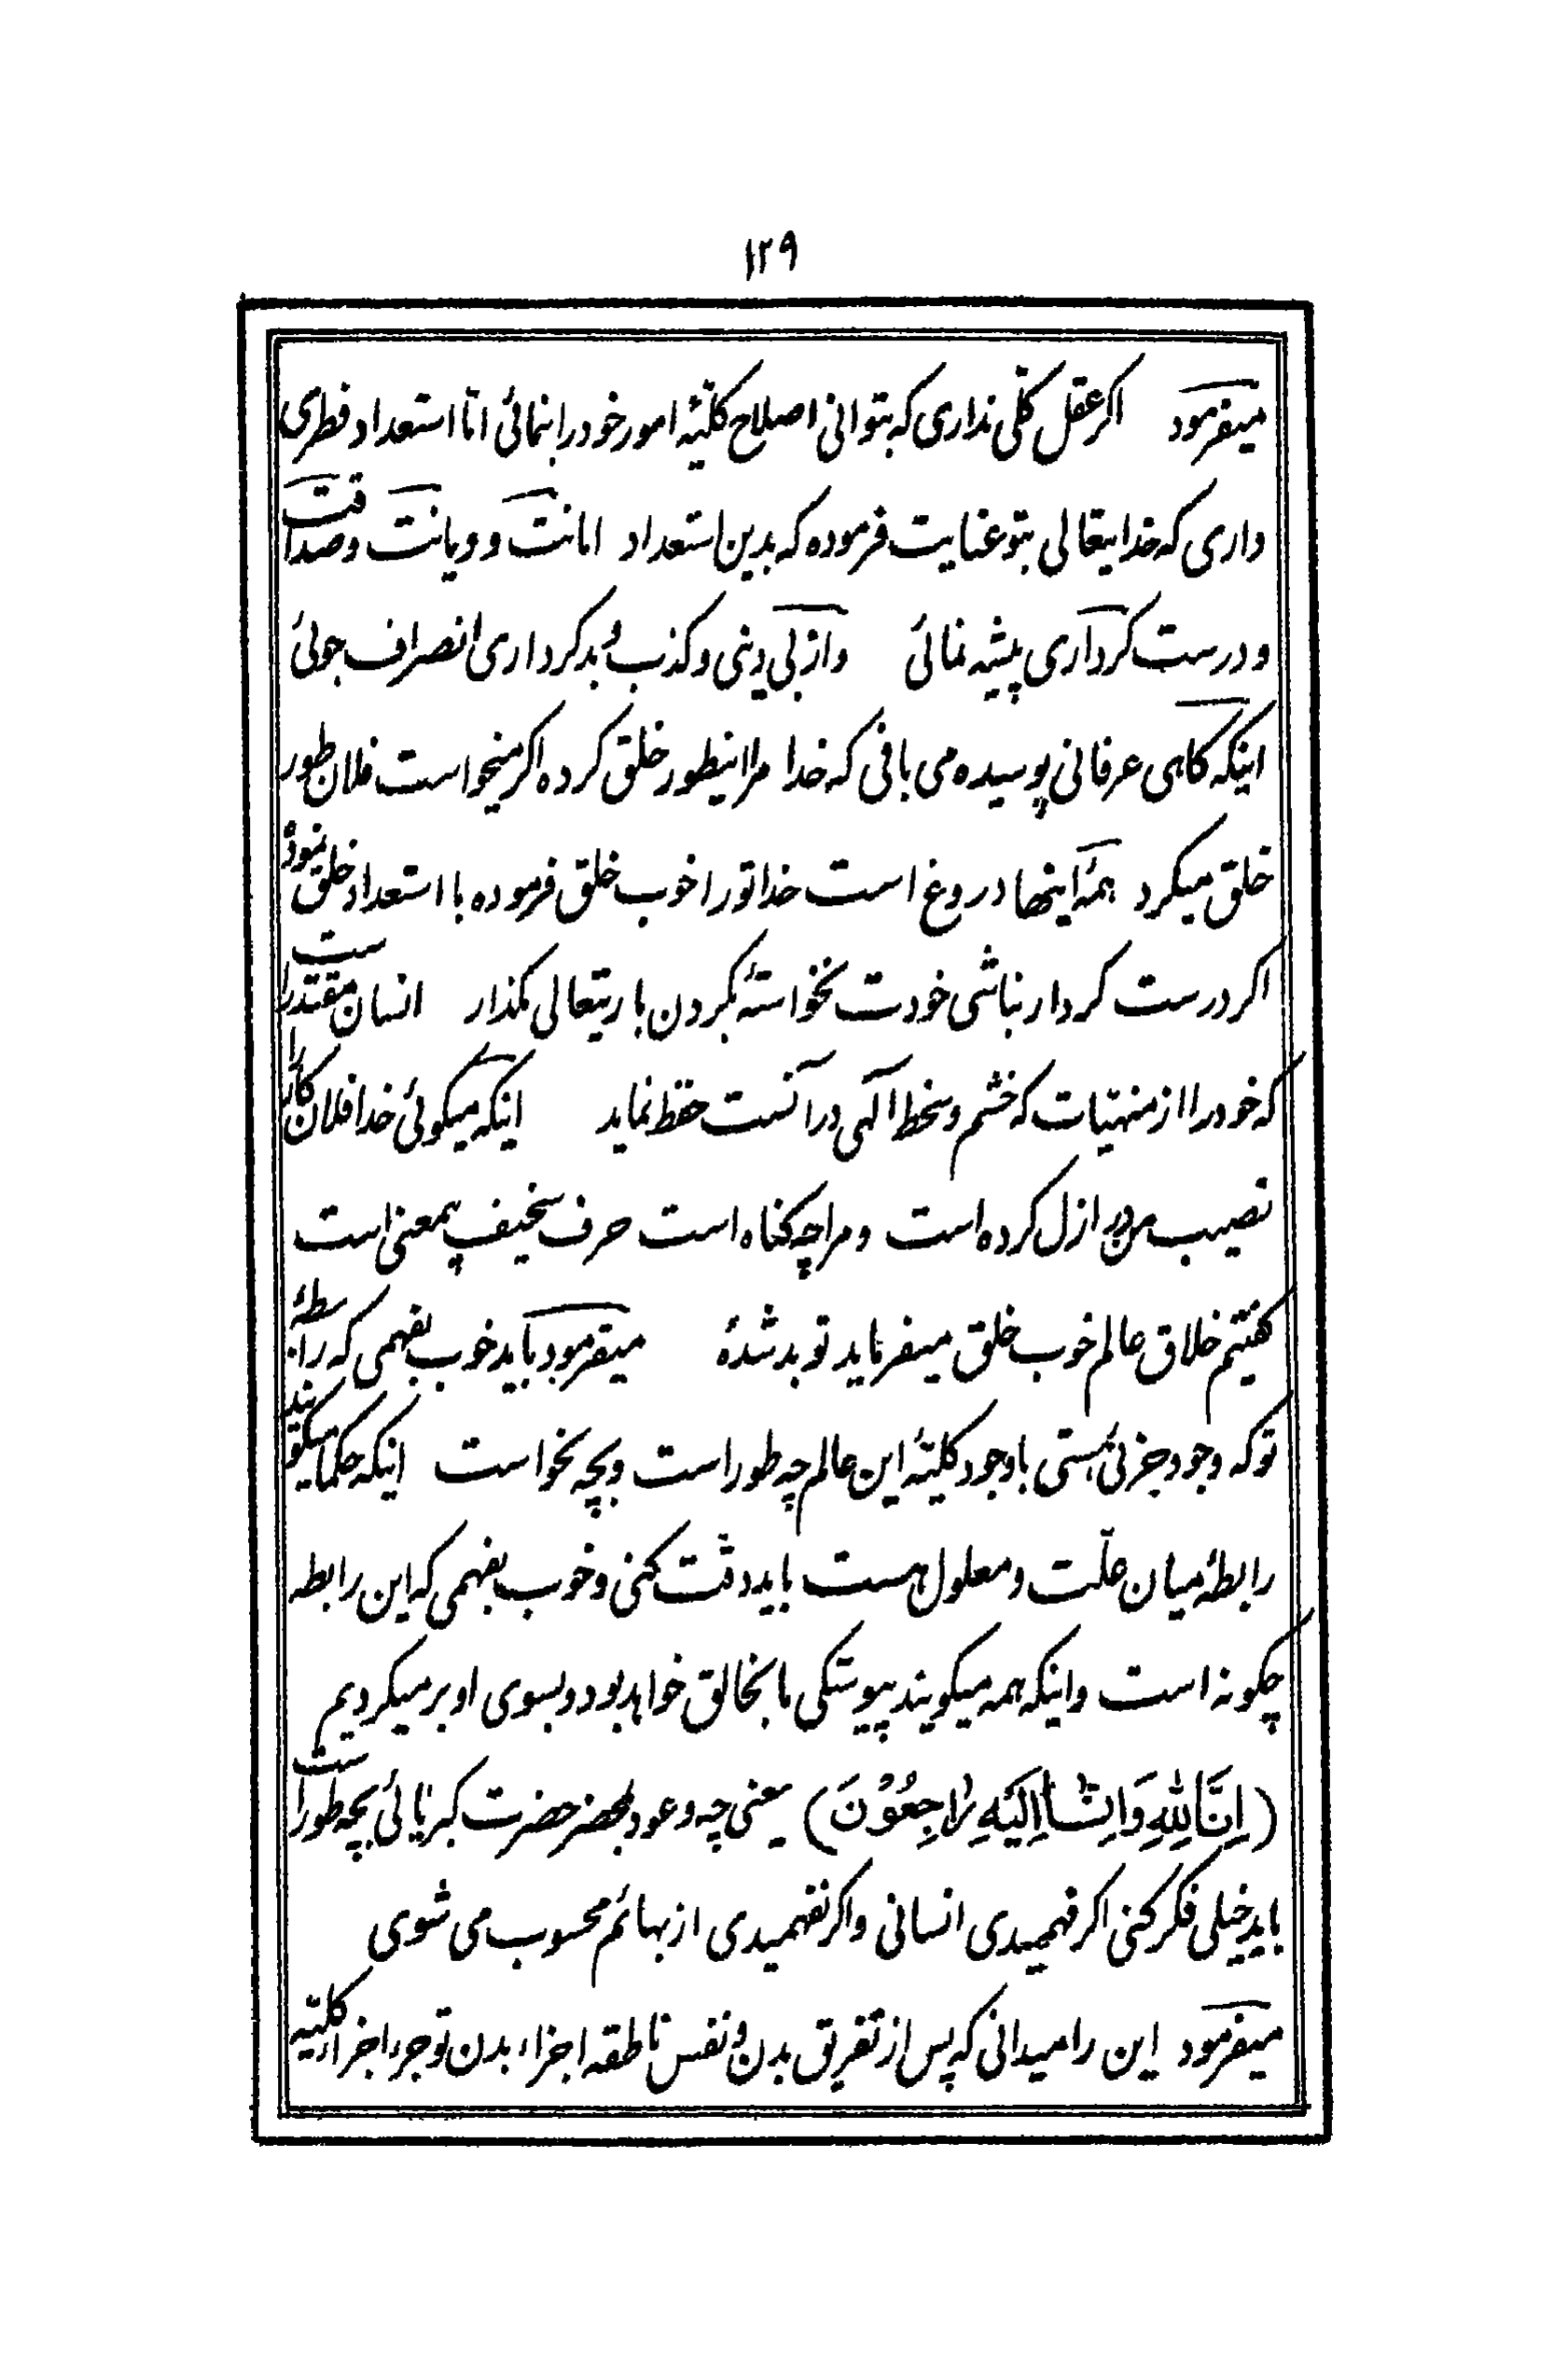 ۱۲۹
میفرمود اکر عقل کلّی نداری که بتوانی اصلاح کلیّهٔ امور خود را نمائی امّا استعداد فطری
داری که خدایتعالی بتو عنایت فرموده که بدین استعداد امانت و دیانت و صداقت
و درست کرداری پیشه نمائی و از بی دینی و کذب و بدکرداری انصراف جوئی
اینکه کاهی عرفانی پوسیده می بافی که خدا مرا اینطور خلق کرده اکر میخواست فلان طور
خلق میکرد همهٔ اینها دروغ است خدا تو را خوب خلق فرموده با استعداد خلق نموده
اکر درست کردار نباشی خودت نخواستهٔ بکردن باریتعالی مکذار انسان مقتدر است
که خود را از منهیّات که خشم و سخط الهی در آنست حفظ نماید اینکه میکوئی خدا فلان کار را
نصیب من در ازل کرده است و مرا چه کناه است حرف سخیف بیمعنی است
کفتیم خلاق عالم خوب خلق میفرماید تو بد شدهٔ میفرمود باید خوب بفهمی که رابطهٔ
تو که وجود جزئی هستی با وجود کلیّهٔ این عالم چه طور است و بچه نحو است اینکه حکما میکویند
رابطهٔ میان علّت و معلول هست باید دقّت کنی و خوب بفهمی که این رابطه
چکونه است و اینکه همه میکویند پیوستکی ما بخالق خواهد بود و بسوی او بر میکردیم
(اِنَّا لِلّٰهِ وَاِنَّا اِلَیْهِ رَاجِعُوْنَ) یعنی چه و عود بمحضر حضرت کبریائی بچه طور است
باید خیلی فکر کنی اکر فهمیدی انسانی و اکر نفهمیدی از بهائم محسوب می شوی
میفرمود این را میدانی که پس از تفریق بدن و نفس ناطقه اجزاء بدن تو جزء اجزاء کلیّه